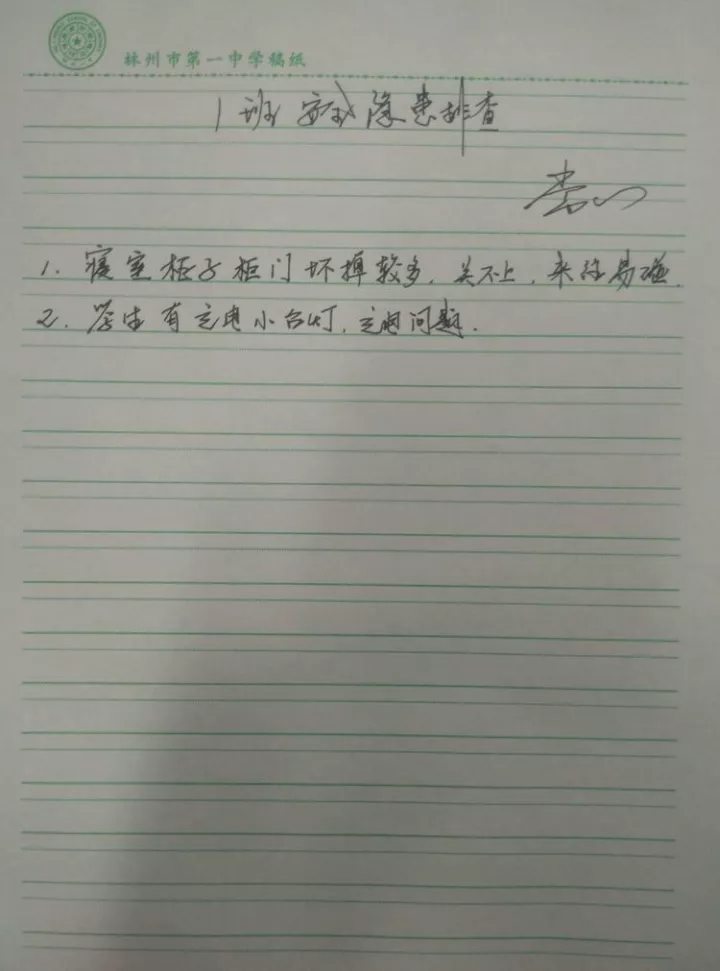 林州市第一中学稿纸
1班安全隐患排查
1. 寝室柜子柜门坏掉较多,关不上,来往易碰.
2. 学生有充电小台灯,充电问题.